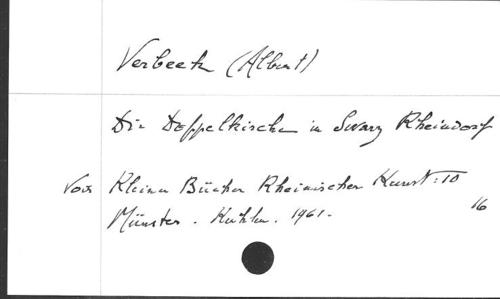 Verbeek (Albert)
Die Doppelkirche in Swarz Rheindorf
Voir Kleine Bücher Rheinischer Kunst: 10
16
Münster. Kühlen. 1961.